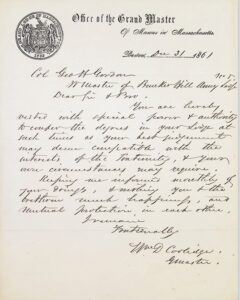 Office of the Grand Master
Of Masons in Massachusetts
Boston, Dec 31 1861
Col Geo H. Gordon
W Master of Bunker Hill Army Lodge No 5
Dear Sir & Bro.
You are hereby
vested with special power & authority
to confer the degrees in your Lodge at
such times as your best judgement
may deem compatible with the
interests of the Fraternity, & your
own circumstances may require.
Keeping me informed monthly of
your doings, & wishing you & the
brethren much happiness, and
mutual protection, in each other.
I remain
Fraternally
Wm D Coolidge
G Master